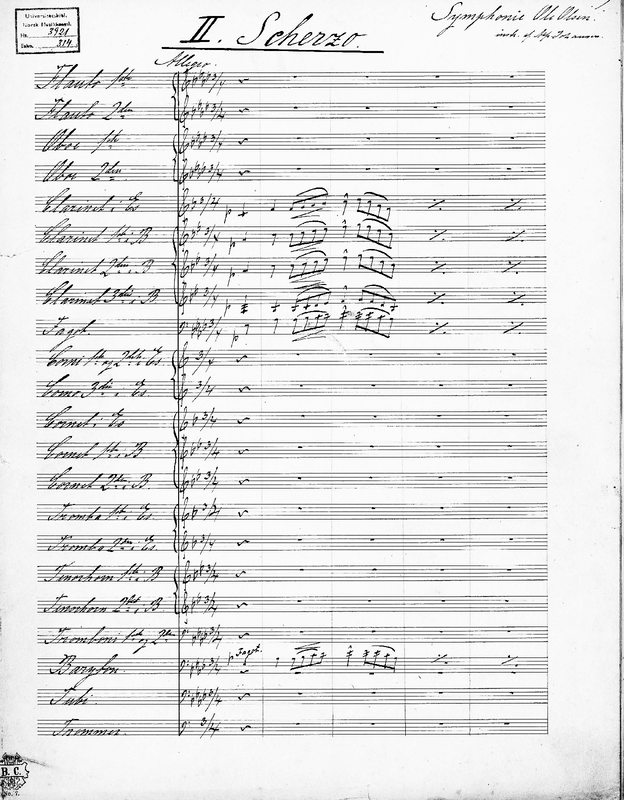 Universitetsbibl.
Norsk Musiksaml.
Nr. 3921
Takn. 314
Symphonie Ole Olsen.
II. Scherzo.
Allegro.
Flauto 1ste
Flauto 2den
Oboe 1ste
Oboe 2den
Clarinet i Es
Clarinet 1ste i B
Clarinet 2den i B
Clarinet 3die i B
Fagot.
Corni 1ste og 2den i Es
Corno 3die i Es
Cornet i Es
Cornet 1ste i B
Cornet 2den i B
Tromba 1ste i Es
Tromba 2den i Es
Tenorhorn 1ste i B
Tenorhorn 2det i B
Tromboni 1ste og 2den
Fagot.
Baryton
Tubi
Trommer.
B. C.
No. 7.